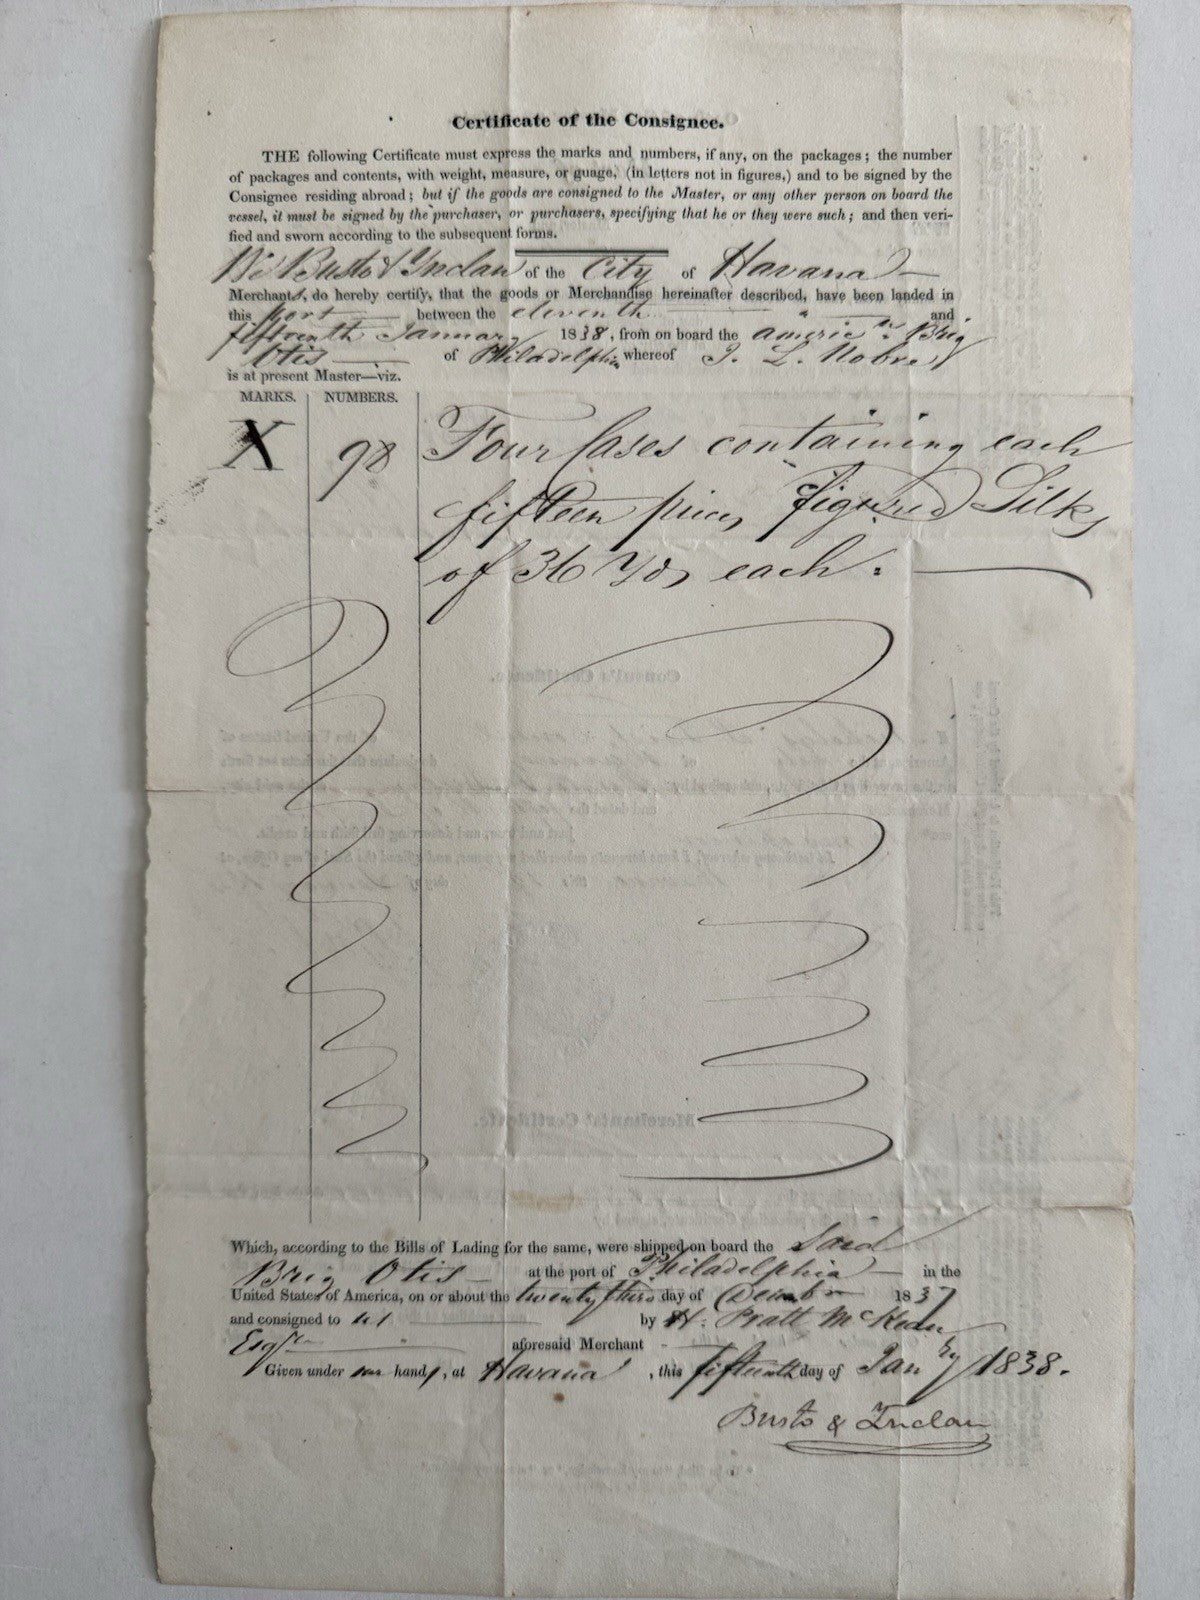 Certificate of the Consignee.
THE following Certificate must express the marks and numbers, if any, on the packages; the number
of packages and contents, with weight, measure, or guage, (in letters not in figures,) and to be signed by the
Consignee residing abroad; but if the goods are consigned to the Master, or any other person on board the
vessel, it must be signed by the purchaser, or purchasers, specifying that he or they were such; and then veri-
fied and sworn according to the subsequent forms.
We Busto & Inclan of the City of Havana
Merchants, do hereby certify, that the goods or Merchandise hereinafter described, have been landed in
this port between the eleventh and
fifteenth January 1838, from on board the americn. Brig
Otis of Philadelphia whereof J. L. Nobre
is at present Master—viz.
MARKS. NUMBERS.
X 98 Four Cases containing each
fifteen pieces figured Silks
of 36 Yds each.
Which, according to the Bills of Lading for the same, were shipped on board the Said
Brig Otis at the port of Philadelphia in the
United States of America, on or about the twenty third day of December 1837
and consigned to us by H. Pratt McKean
Esqre aforesaid Merchant
Given under our hands, at Havana, this fifteenth day of Jany 1838.
Busto & Inclan